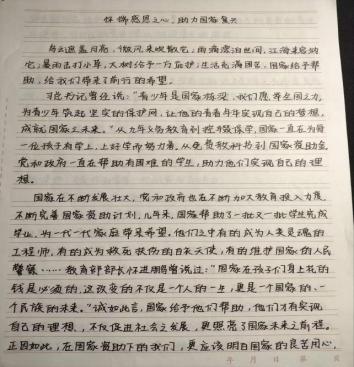 怀揣感恩之心，助力国家复兴
乌云遮盖月亮，微风来吹散它；雨滴滂泊世间，江海来容纳
它；暴雨击打小草，大树给予一方庇护；生活充满困苦，国家给予帮
助，给我们带来了前行的希望。
习总书记曾经说：“青少年是国家栋梁，我们愿举全国之力，
为青少年筑起坚实的保护网，让他的看着年年实现自己的梦想，
成就国家之未来。”从九年义务教育到控辍保学，国家一直在为每
一位孩子有学上，上好学而努力着，从免费教科书到国家资助金
党和政府一直在帮助有困难的学生，助力他们实现自己的理
想。
国家在不断发展壮大，党和政府也在不断加大教育投入力度，
不断完善国家资助计划，几年来，国家帮助了一批又一批学生完成
毕业，为一代一代家庭带来希望。他们之中有的成为人类灵魂的
工程师，有的成为救死扶伤的白衣天使，有的维护国家的人民
警察……教育部部长怀进鹏曾说过：“国家在孩子们身上花的
钱是必须的，这改变的不仅是一个人的一生，更是一个国家的、一
个民族的未来。”诚如此言，国家给予他们帮助，他们才有实现
自己的理想，不仅促进社会之发展，更照亮了国家未来之前程。
正因如此，在国家资助下的我们，更应该明白国家的良苦用心，
年 月 日 第 页